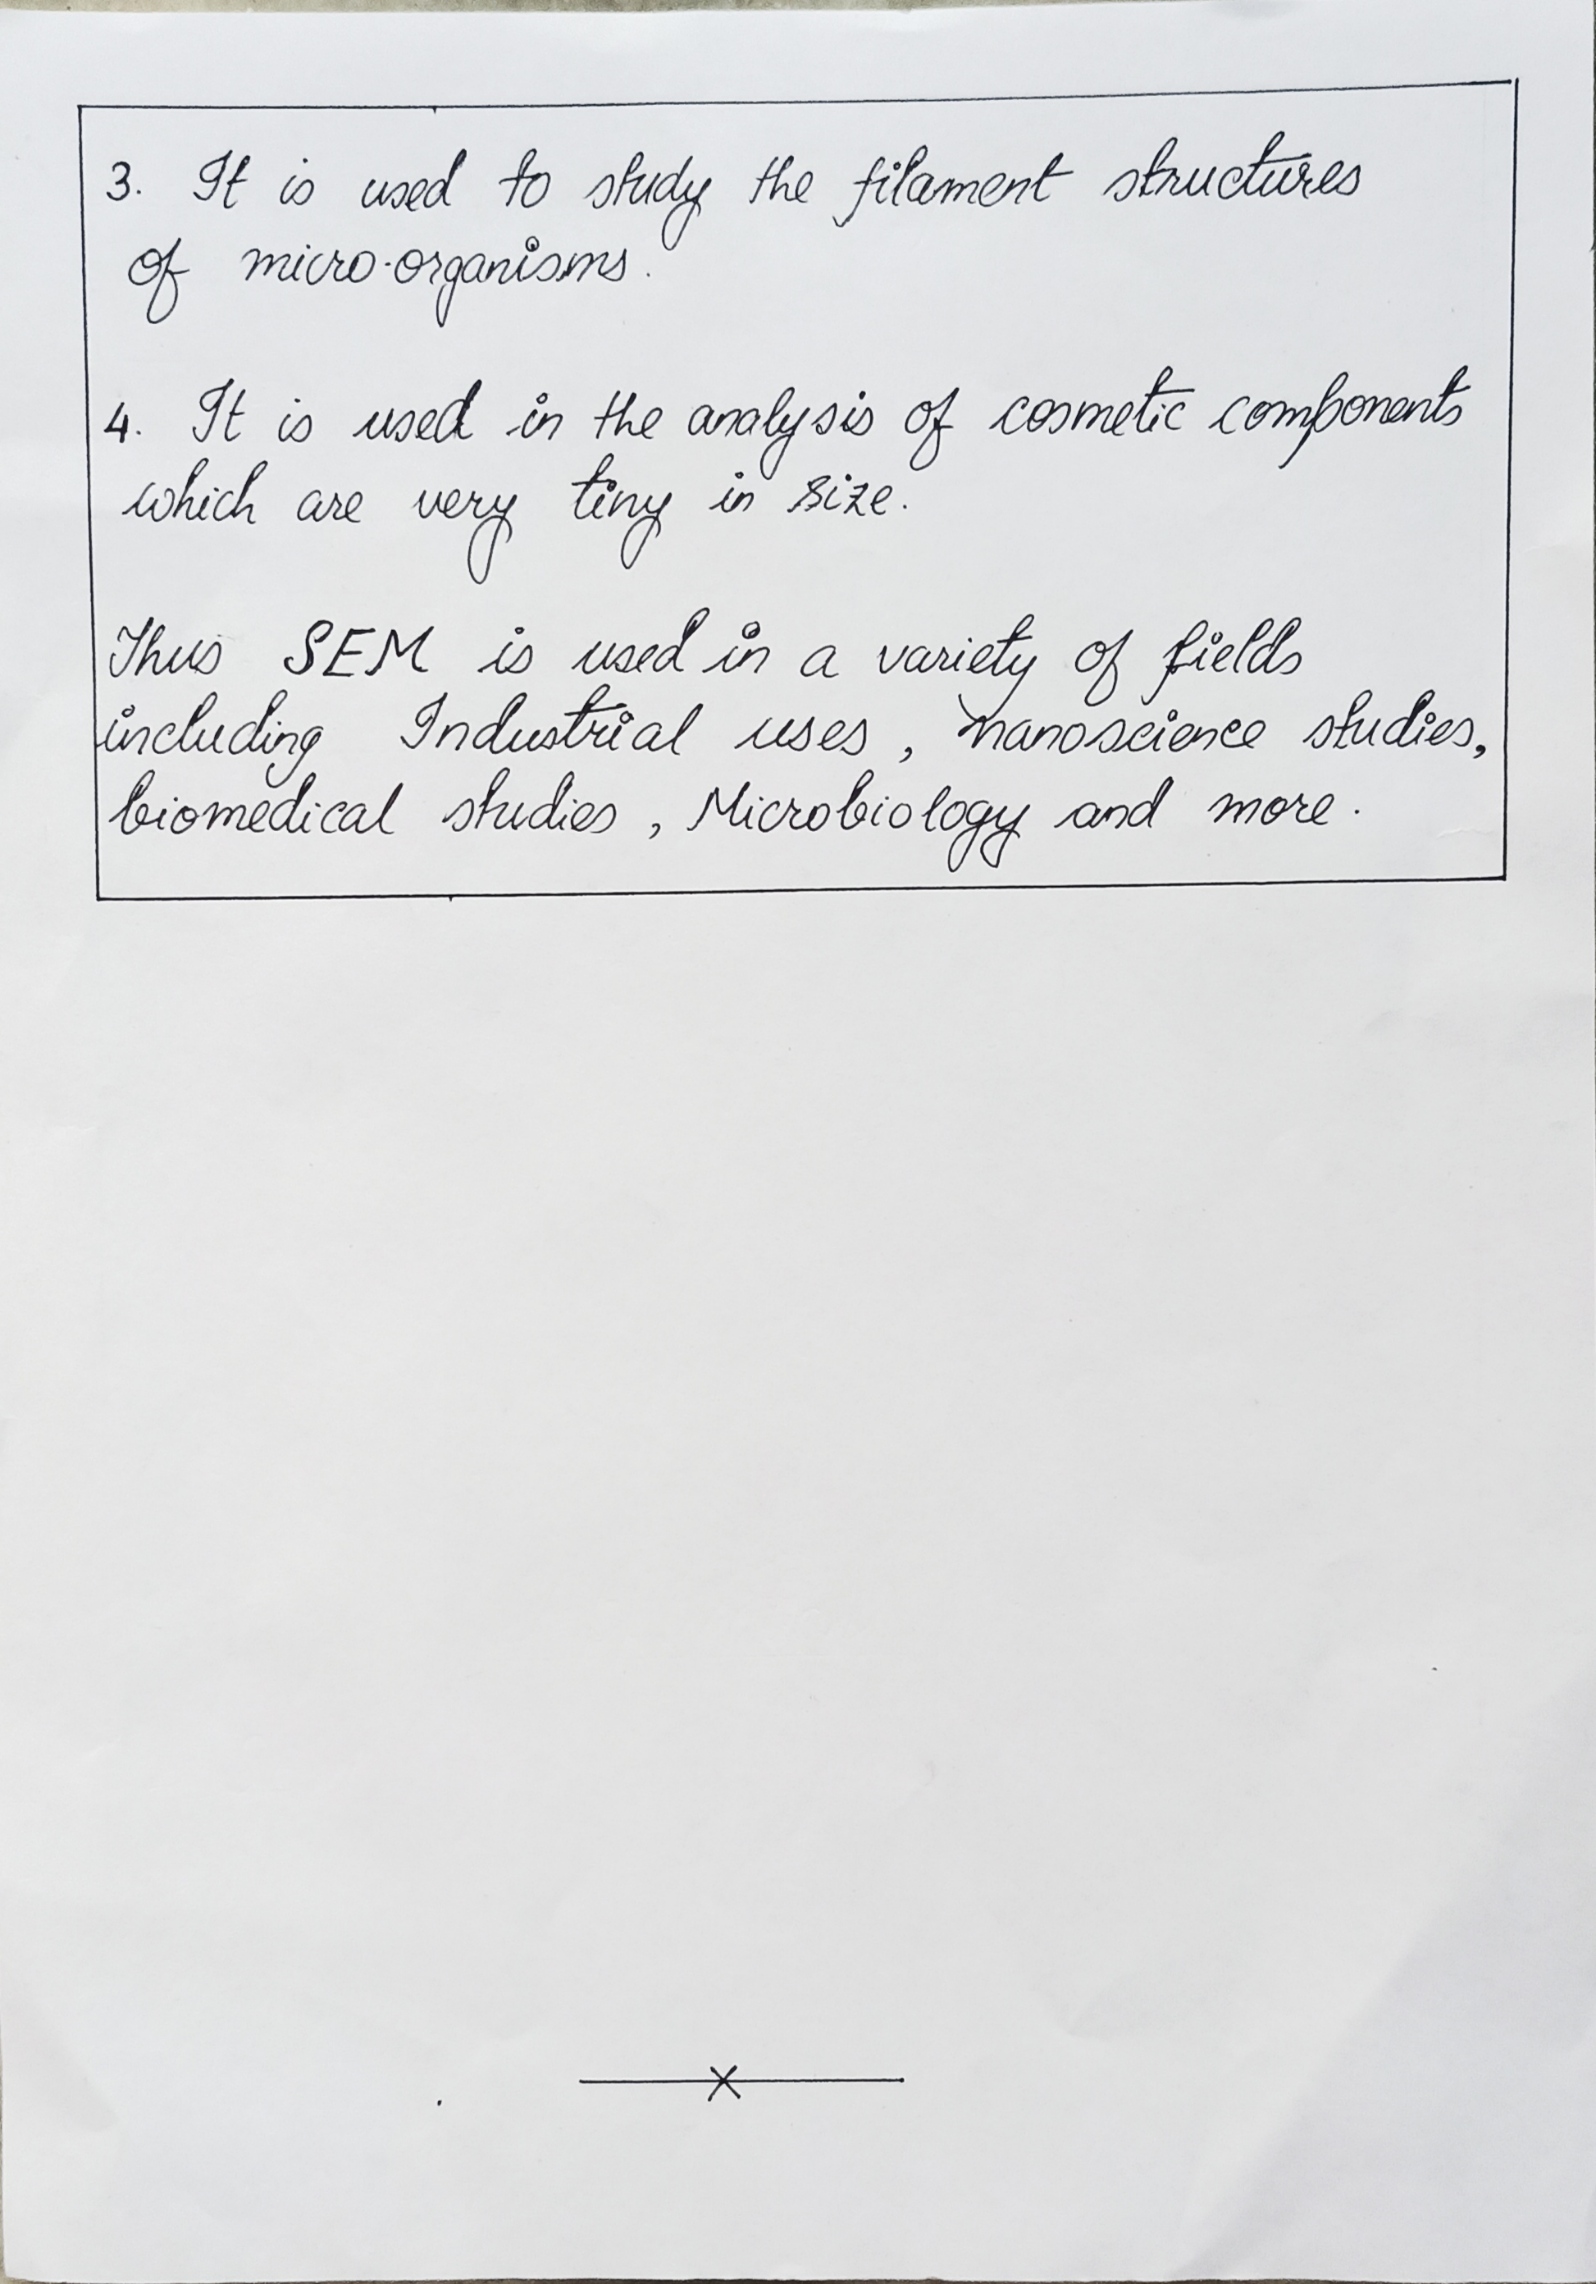 3. It is used to study the filament structures
of micro-organisms.
4. It is used in the analysis of cosmetic components
which are very tiny in size.
Thus SEM is used in a variety of fields
including Industrial uses, nanoscience studies,
biomedical studies, Microbiology and more.